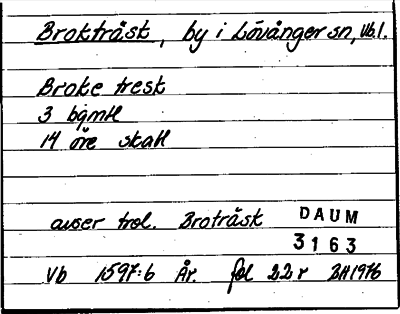 Brokträsk, by i Lövånger sn, Vb.l.
Broke tresk
3 bgmtl
14 öre skatt
avser trol. Broträsk DAUM
3163
Vb 1597:6 År. fol 22r BH1976